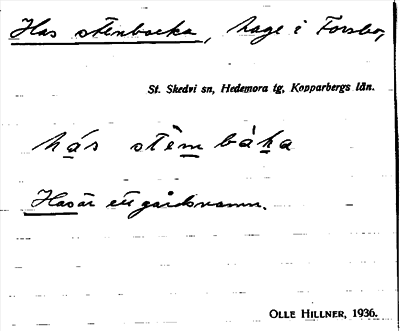 Has stenbacka, hage i Forsbo,
St. Skedvi sn, Hedemora tg, Kopparbergs län.
hás stèm bàka
Has är ett gårdsnamn.
OLLE HILLNER, 1936.